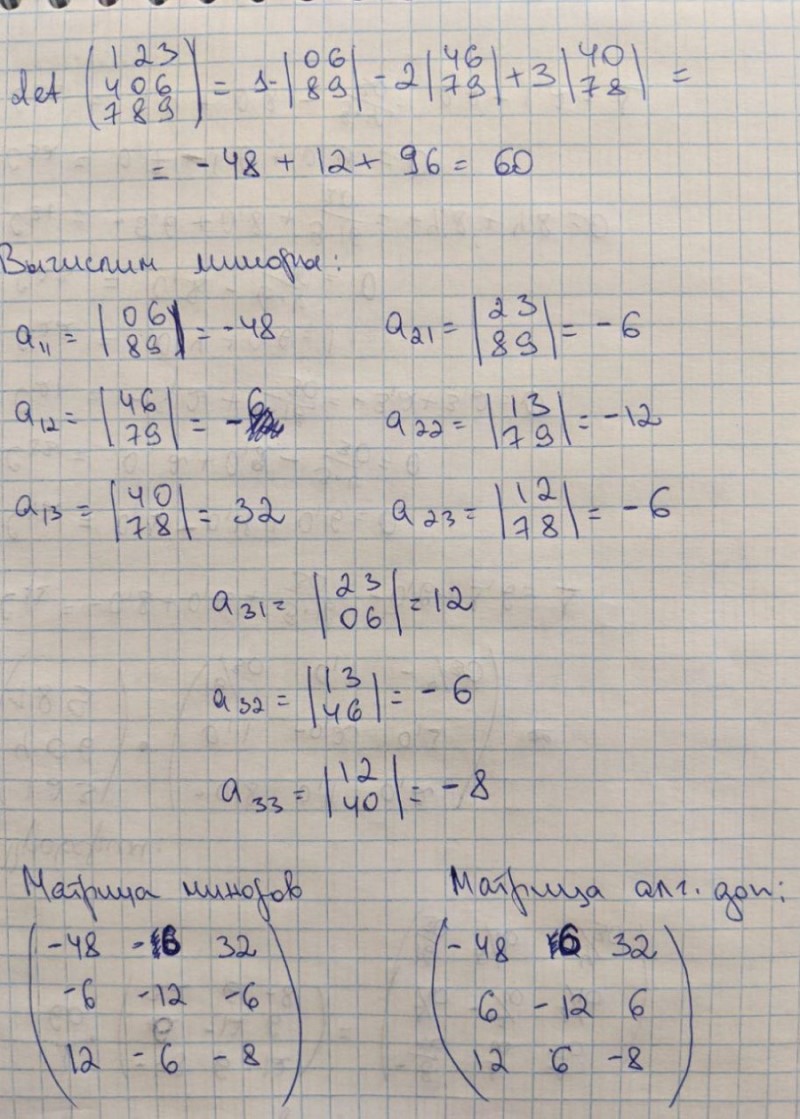 det (1 2 3
4 0 6
7 8 9) = 1·|0 6
8 9| - 2|4 6
7 9| + 3|4 0
7 8| =
= -48 + 12 + 96 = 60
Вычислим миноры:
a₁₁ = |0 6
8 9| = -48
a₂₁ = |2 3
8 9| = -6
a₁₂ = |4 6
7 9| = -6
a₂₂ = |1 3
7 9| = -12
a₁₃ = |4 0
7 8| = 32
a₂₃ = |1 2
7 8| = -6
a₃₁ = |2 3
0 6| = 12
a₃₂ = |1 3
4 6| = -6
a₃₃ = |1 2
4 0| = -8
Матрица миноров
(-48 -6 32
-6 -12 -6
12 -6 -8)
Матрица алг. доп:
(-48 6 32
6 -12 6
12 6 -8)